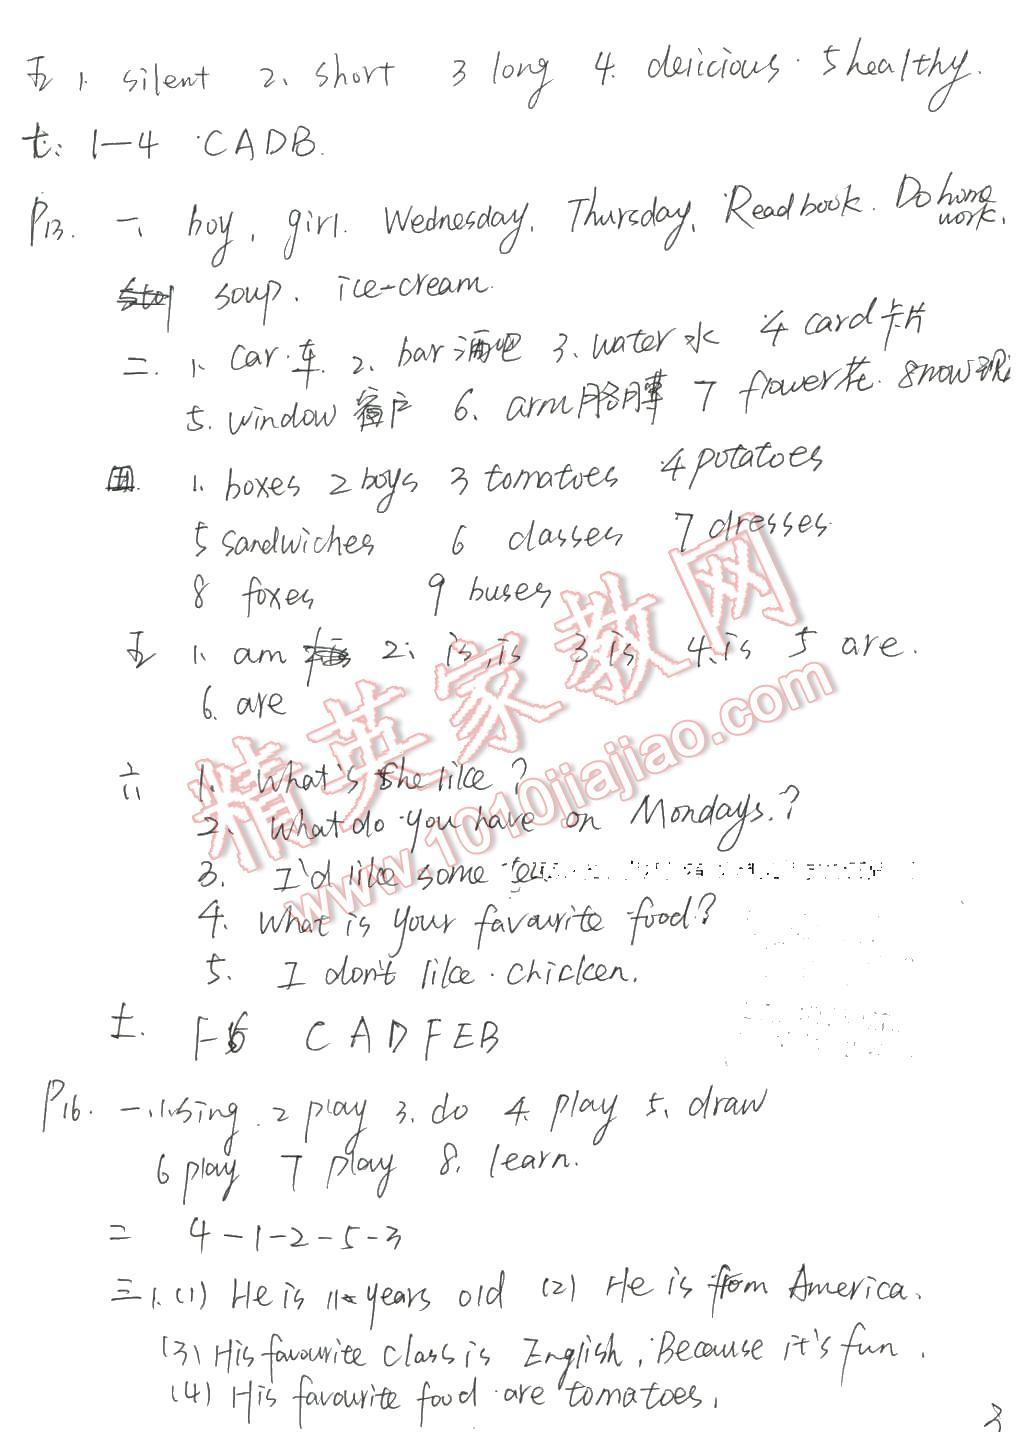 五 1. silent 2. short 3 long 4. deiicious. 5 healthy.
七: 1—4 CADB.
P13. 一、boy, girl. Wednesday, Thursday, Read book. Do home work.
soup. ice-cream.
二. 1. car.车. 2. bar 酒吧 3. water 水 4 card 卡片
5. window 窗户 6. arm 7 flower 花. 8 now
四. 1. boxes 2 boys 3 tomatoes 4 potatoes
5 sandwiches 6 classes 7 dresses
8 foxes 9 buses
五 1. am 2: is, is 3 is 4. is 5 are.
6. are
六 1. What's she like?
2. What do you have on Mondays.?
3. I'd like some
4. What is your favourite food?
5. I don't like chicken.
七. 1-6 CADFEB
P16. 一.1.sing. 2 play 3. do 4. play 5. draw
6 play 7 play 8. learn.
二 4-1-2-5-3
三 1. (1) He is 11 years old (2) He is from America.
(3) His favourite class is English, Because it's fun.
(4) His favourite food are tomatoes.
3
精英家教网
www.1010jiajiao.com